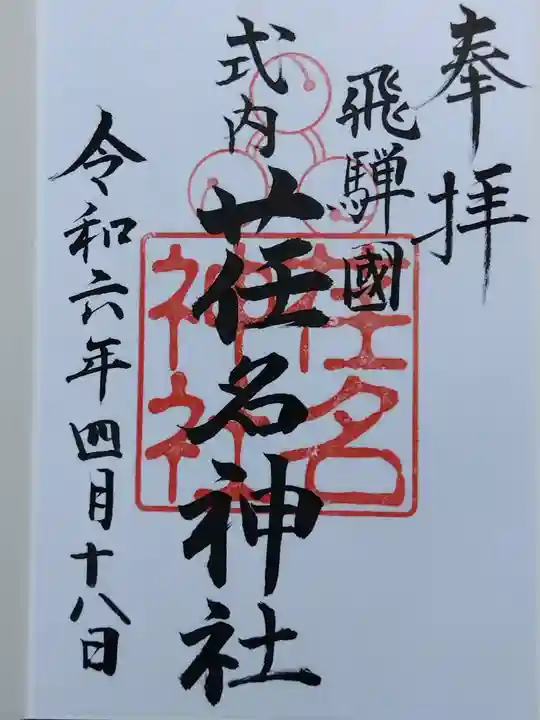 奉拝
飛騨國
式内
荏名神社
荏名
神社
令和六年四月十八日